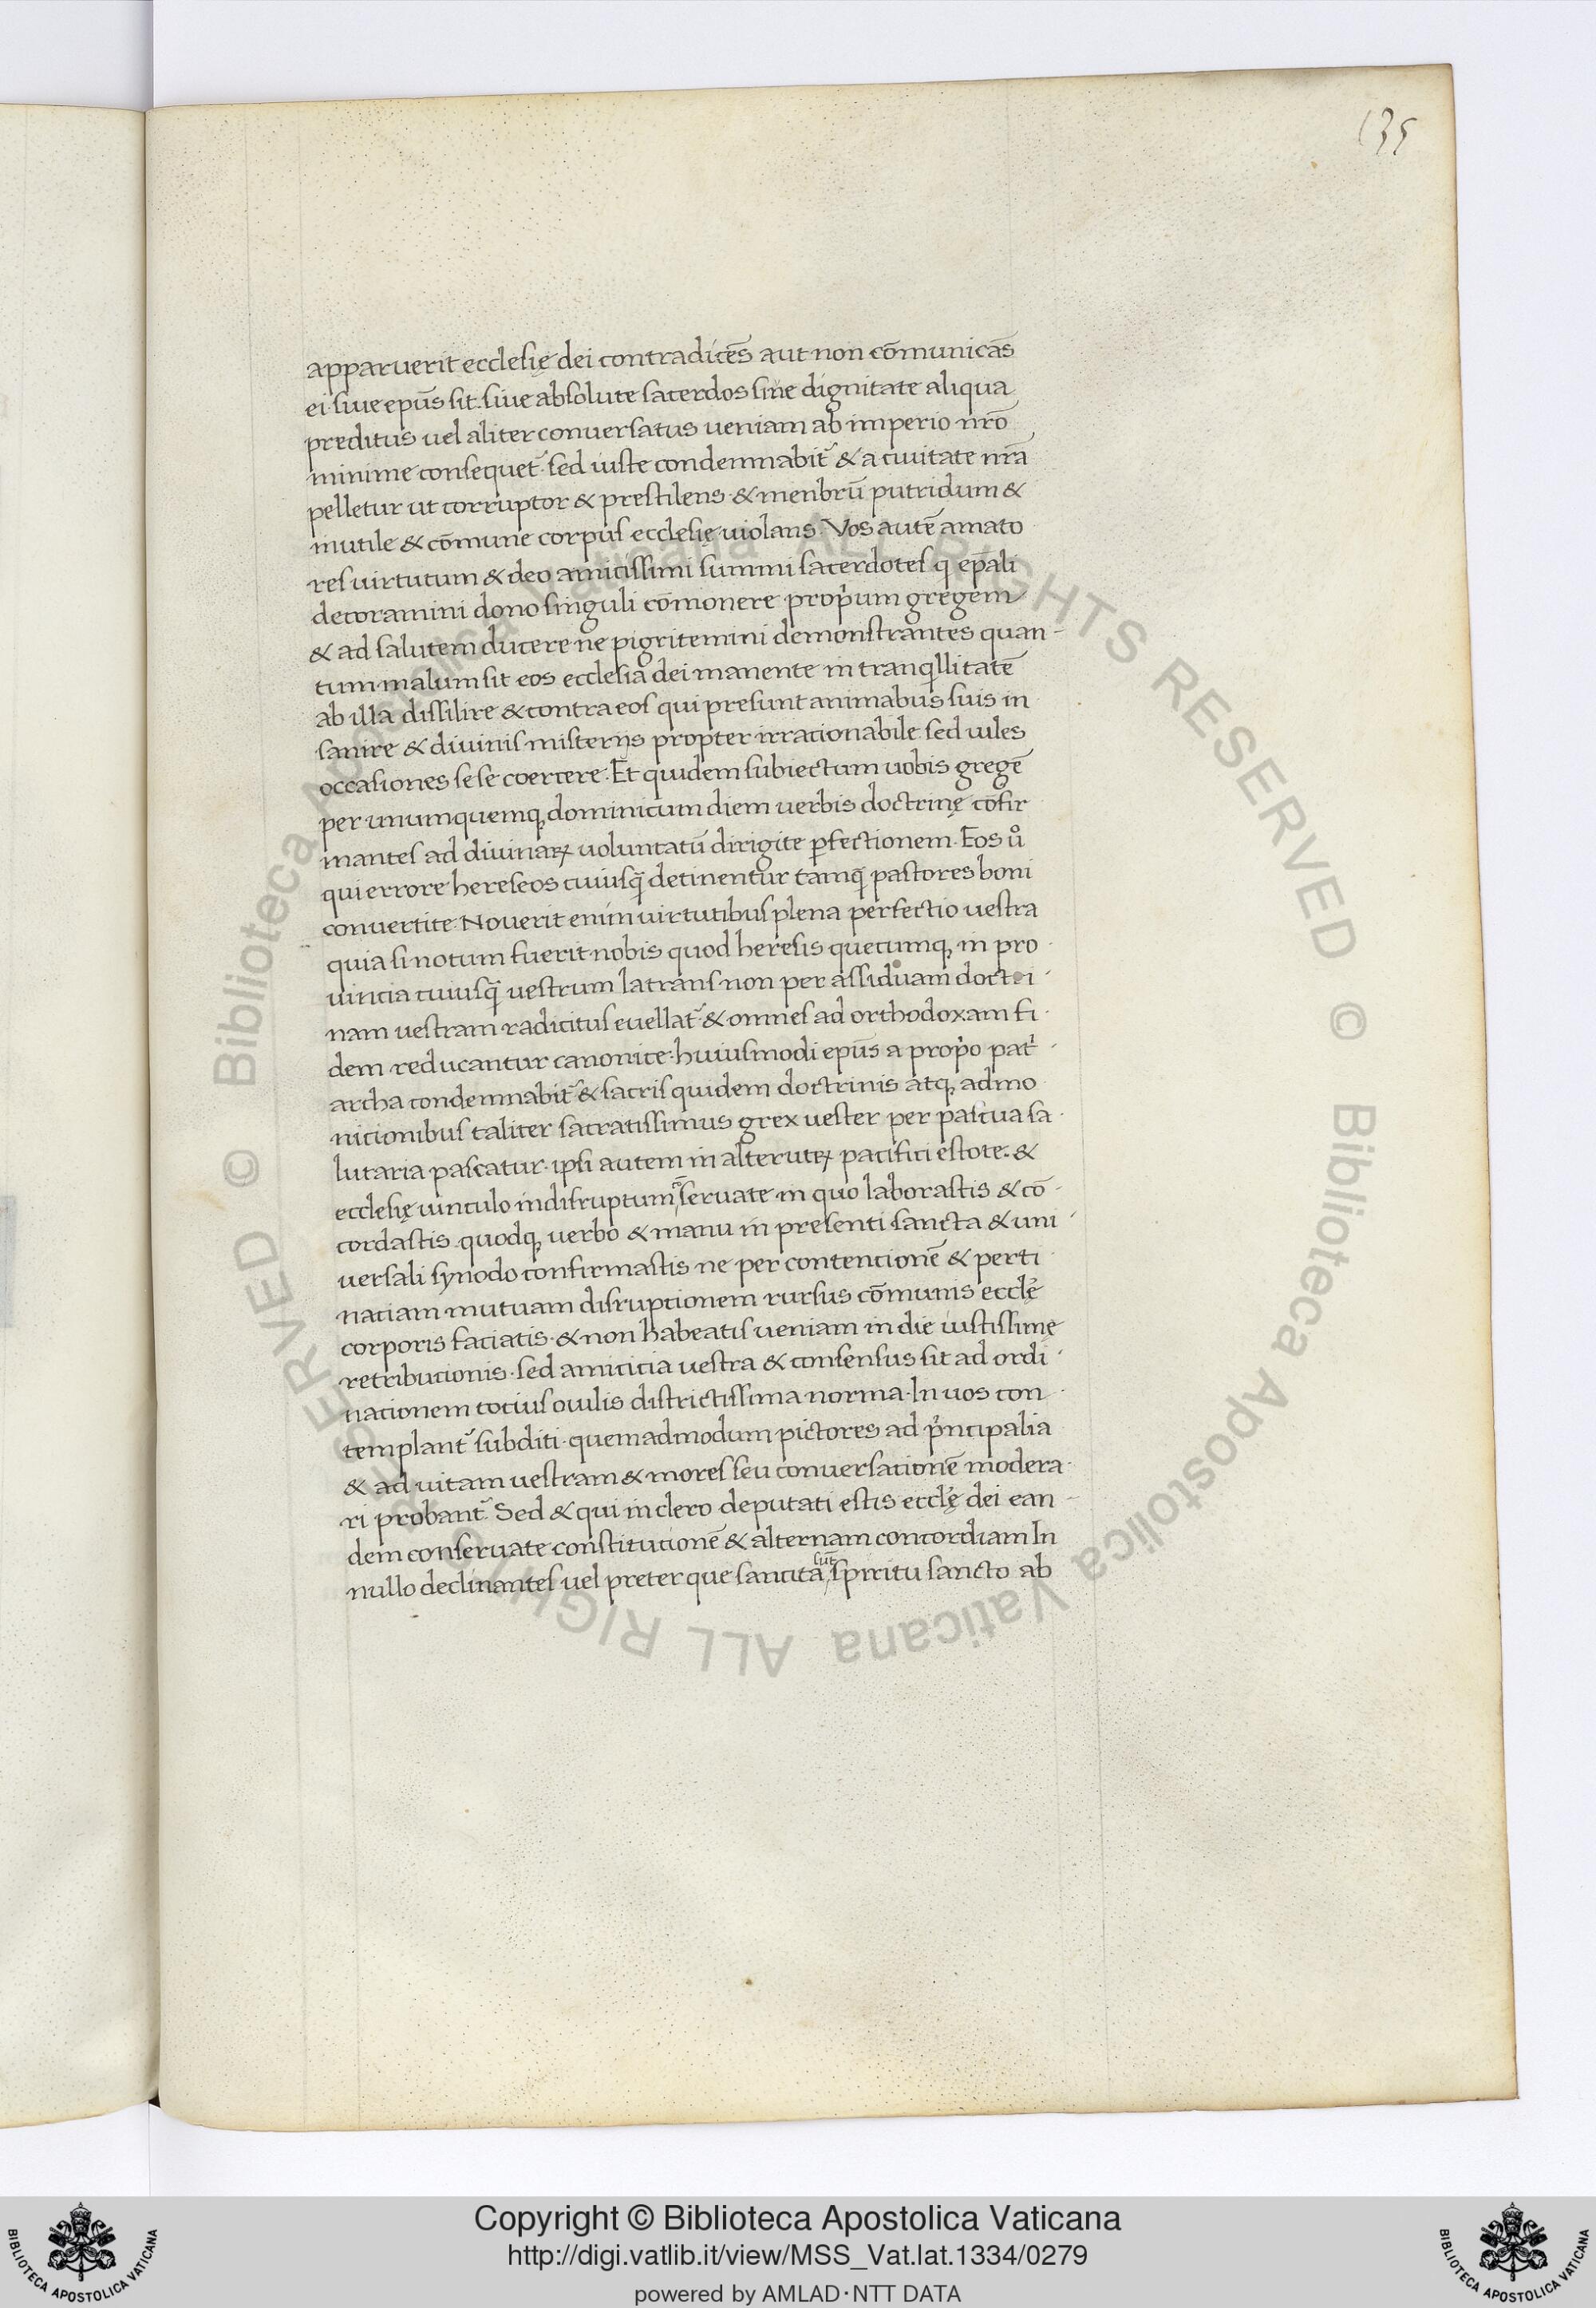 135
apparuerit ecclesię dei contradicēs aut non cōmunicās
ei · siue ep̄us sit · siue absolute sacerdos siue dignitate aliqua
preditus uel aliter conuersatus ueniam ab imperio nr̄o
minime consequet᷑ · sed iuste condemnabit᷑ & a ciuitate nr̄a
pelletur ut corruptor & prestilens · & menbrū putridum &
inutile & cōmune corpus ecclesię uiolans · Vos autē amato
res uirtutum & deo amicissimi summi sacerdotes q ep̄ali
decoramini dono singuli cōmonere prop̄ium gregem
& ad salutem ducere ne pigritemini demonstrantes quan-
tum malum sit eos ecclesia dei manente in tranq̇llitatē
ab illa dissilire & contra eos qui presunt animabus suis in
sanire & diuinis misterijs propter irracionabile sed uiles
occasiones sese coercere · Et quidem subiectum uobis gregē
per unumquemq; dominicum diem uerbis doctrinę cōfir
mantes ad diuinaꝝ uoluntatū dirigite ꝑfectionem · Eos uͦ
qui errore hereseos cuiusq̄ detinentur tamq̄ pastores boni
conuertite · Nouerit enim uirtutibus plena perfectio uestra
quia si notum fuerit nobis quod heresis quecumq; in pro
uincia cuiusq̄ uestrum latrans non per assiduam doctri
nam uestram radicitus euellat᷑ · & omnes ad orthodoxam fi
dem reducantur canonice · huiusmodi ep̄us a prop̄o pat͛
archa condemnabit᷑ & sacris quidem doctrinis atq; admo
nicionibus taliter sacratissimus grex uester per pascua sa
lutaria pascatur · ipsi autem in alterutꝝ pacifici estote · &
ecclesię uinculo indisruptum seruate in quo laborastis & cō
cordastis · quodq; uerbo & manu in presenti sancta & uni
uersali synodo confirmastis ne per contencionē & perti
naciam mutuam disrupcionem rursus cōmunis eccl̄ę
corporis faciatis · & non habeatis ueniam in die iustissimę
retribucionis · sed amicicia uestra & consensus sit ad ordi
nacionem tocius ouilis districtissima norma · In uos con
templant᷑ subditi · quemadmodum pictores ad p͛ncipalia
& ad uitam uestram & mores seu conuersationē modera
ri probant᷑ · Sed & qui in clero deputati estis eccl̄ę dei ean
dem conseruate constitucionē & alternam concordiam In
nullo declinantes uel preter que sancita sūt spiritu sancto ab
© Biblioteca Apostolica Vaticana ALL RIGHTS RESERVED © Biblioteca Apostolica Vaticana ALL RIGHTS RESERVED
Copyright © Biblioteca Apostolica Vaticana
http://digi.vatlib.it/view/MSS_Vat.lat.1334/0279
powered by AMLAD · NTT DATA
BIBLIOTECA APOSTOLICA VATICANA
BIBLIOTECA APOSTOLICA VATICANA